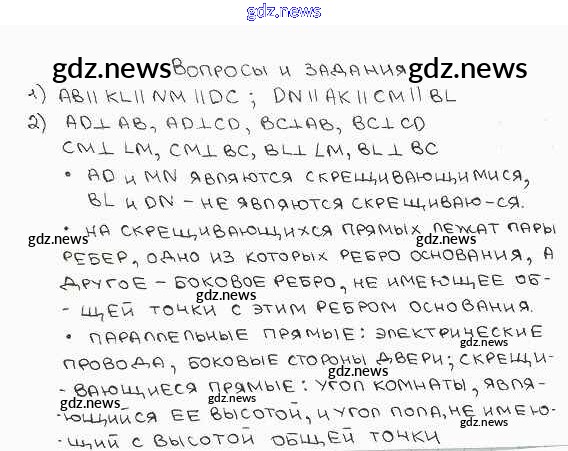 gdz.news
Вопросы и задания
gdz.news gdz.news
1) AB || KL || NM || DC ; DN || AK || CM || BL
2) AD⊥AB, AD⊥CD, BC⊥AB, BC⊥CD
CM⊥LM, CM⊥BC, BL⊥LM, BL⊥BC
• AD и MN являются скрещивающимися,
BL и DN – не являются скрещиваю-ся.
• На скрещивающихся прямых лежат пары
gdz.news gdz.news
ребер, одно из которых ребро основания, а
другое – боковое ребро, не имеющее об-
gdz.news
- щей точки с этим ребром основания.
• Параллельные прямые: электрические
gdz.news
провода, боковые стороны двери; скрещи-
gdz.news
- вающиеся прямые: угол комнаты, явля-
gdz.news gdz.news
- ющийся ее высотой, и угол пола, не имею-
- щий с высотой общей точки
gdz.news